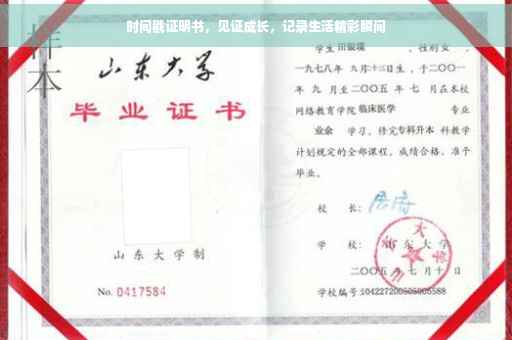 时间戳证明书，见证成长，记录生活精彩瞬间
样本
山东大学
毕业证书
山东大学制
No. 0417584
学生 田银瑞 ，性别女 ，
一九七八年 九月十二日生，于二〇〇一
年 九 月至二〇〇五 年 七 月在本校
网络教育学院临床医学 专业
业余 学习，修完专科升本 科教学
计划规定的全部课程，成绩合格，准予
毕业。
校 长：
学 校： 山东大学
二〇〇五 年 七 月 十 日
学校编号:104227200505005588